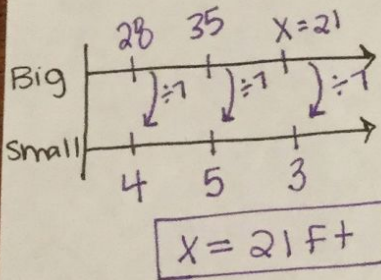 28 35 x=21
Big ÷7 ÷7 ÷7
Small
4 5 3
x = 21 Ft